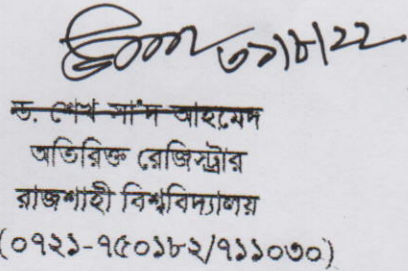 ৩১/৮/২২
ড. শেখ সা'দ আহমেদ
অতিরিক্ত রেজিস্ট্রার
রাজশাহী বিশ্ববিদ্যালয়
(০৭২১-৭৫০১৮২/৭১১০৩০)